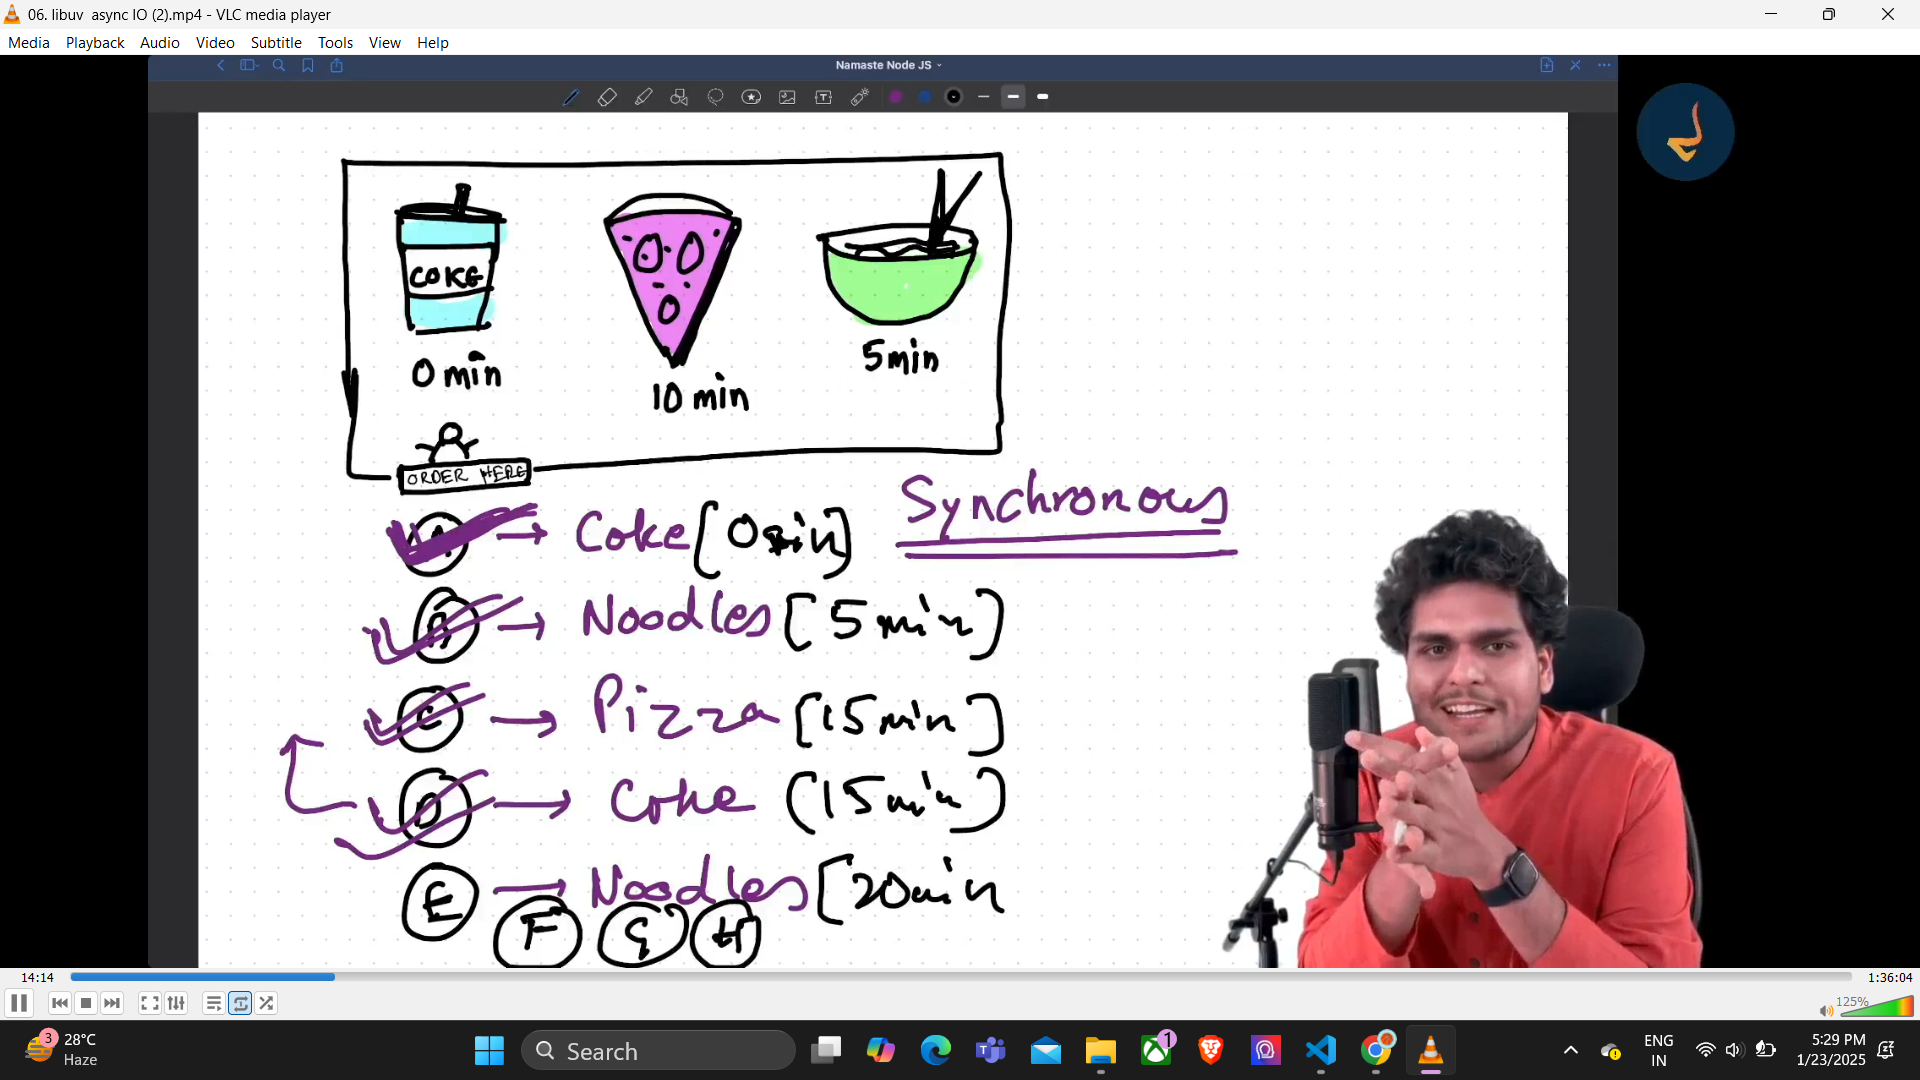 06. libuv  async IO (2).mp4 - VLC media player
Media Playback Audio Video Subtitle Tools View Help
Namaste Node JS
COKE
0 min
10 min
5min
ORDER HERE
A → Coke [0min]
Synchronous
B → Noodles [5 min]
C → Pizza [15min]
D → Coke (15min)
E → Noodles [20min
F G H
14:14
1:36:04
125%
3
28°C
Haze
Search
1
ENG
IN
5:29 PM
1/23/2025